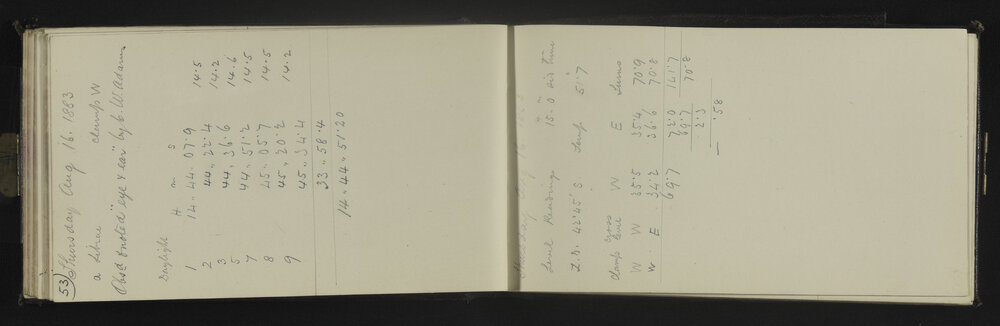 53) Thursday Aug 16. 1883
a Librae clamp W
Obsd & noted "eye & ear" by C. W Adams
Daylight
H m s
1 14 .. 44 . 07 . 9 14.5
2 44 .. 22 . 4 14.2
3 44 . 36 . 6 14.6
5 44 .. 51 . 2 14.5
7 45 . 05 . 7 14.5
8 45 .. 20 . 2 14.2
9 45 .. 34 . 4
33 .. 58 . 4
14 .. 44 .. 51 . 20
Level Readings 15.0 sid time
Z.D. 42° 45' S Temp 51°.7
Clamp Cross level W E Sums
W W 35.5 35.4 70.9
W E 34.2 36.6 70.8
69.7 72.0 141.7
69.7 70.8
2.3
.58